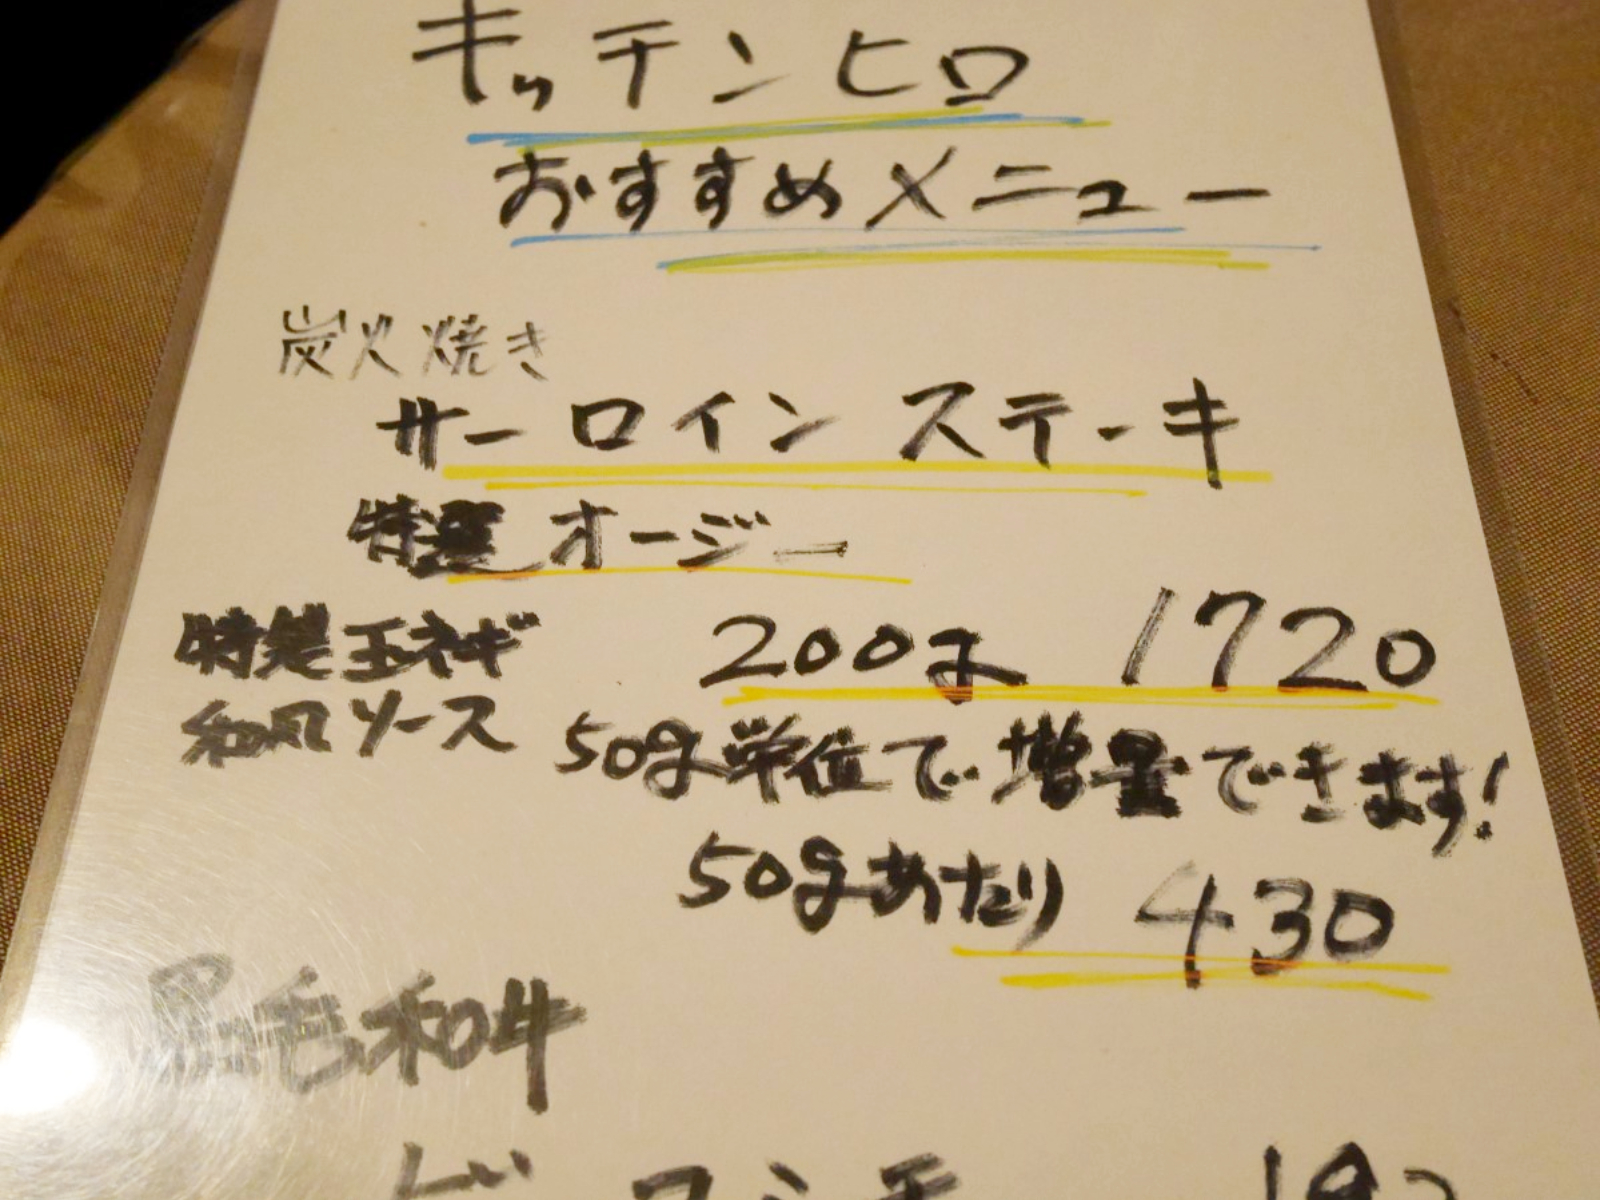 キッチンヒロ
おすすめメニュー
炭火焼き
サーロインステーキ
特選オージー
特製玉ネギ
和風ソース
200g 1720
50g単位で増量できます!
50gあたり 430
黒毛和牛